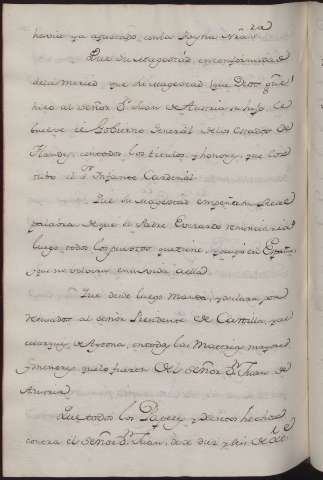 havia ya ajustado con la Reyna Nra Sra
Que Su Magestad en conformidad
de la merced, que su Magestad (que Dios g.de)
hizo al Señor D.n Juan de Austria su hijo, le
buelve el Govierno General de los Estados de
Flandes, con todos los titulos, y honores, que los
tubo el S.r Infante Cardenal
Que Su Magestad empeñe su Real
palabra de que el Padre Everardo renunciara
luego todos los puestos que tiene, y gajes en España
y que no volvera en su vida a ella
Que desde luego manda, declaren por
al Señor Presidente de Castilla, y al
Marques de Aytona, en todas las Materias mayores
y menores, que lo fueren del Señor D.n Juan de
Austria
Que todos los Papeles, y Decretos hechos
contra el Señor D.n Juan, desde diez y seis de